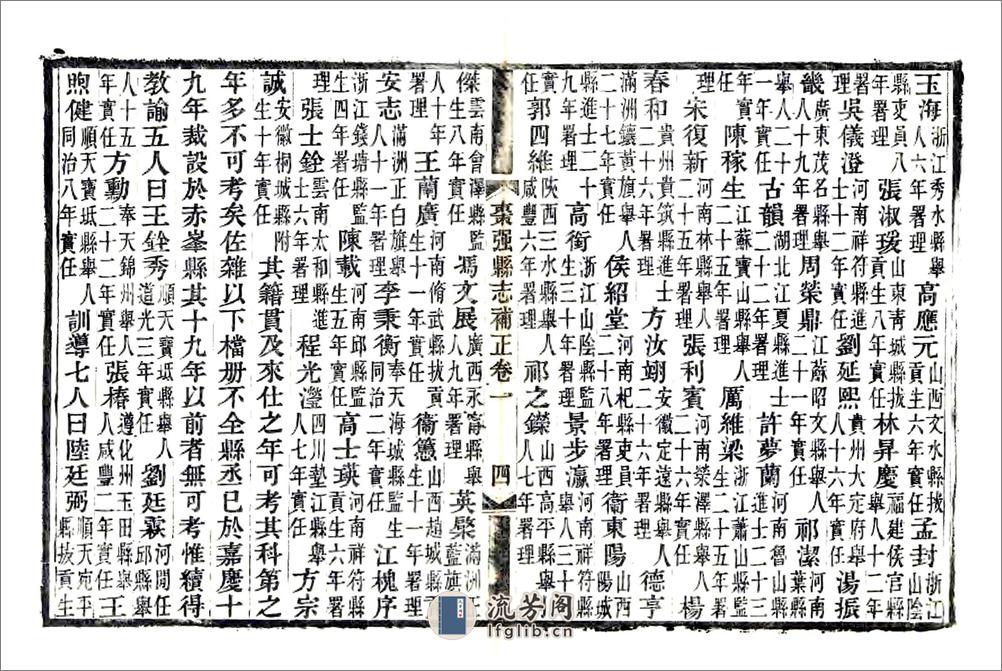 玉海浙江秀水縣舉人六年署理高應元山西文水縣拔貢生六年實任孟封浙江山陰
縣吏員八年署理張淑瑗山東青城縣拔貢生八年實任林昇慶福建侯官縣舉人十二年
理吳儀澄河南祥符縣進士十二年實任劉延熙貴州大定府舉人十六年實任湯振
畿廣東茂名縣舉人十九年署理周榮鼎江蘇昭文縣二十一年實任祁潔河南葉縣
舉人二十一年署理古韻湖北江夏縣進士二十二年署理許夢蘭河南魯山縣進士二十二
年實任陳稼生江蘇寶山縣舉人二十四年實任厲維梁浙江蕭山縣二十五年署
理宋復新河南林縣舉人二十五年署理張利賓河南滎澤縣舉人二十六年實任楊
春和貴州貴筑縣進士二十六年署理方汝翊安徽定遠縣舉人二十七年署理德亨
滿洲鑲黃旗舉人二十七年實任侯紹堂河南杞縣吏員二十八年署理衞東陽山西陽城
縣進士二十九年實任高衡浙江山陰縣監生三十年署理景步瀛河南祥符縣舉人三十年實
任郭四維陝西三水縣舉人咸豐六年實任祁之鑅山西高平縣舉人七年署理
棗强縣志補正卷一 四
傑雲南會澤縣監生八年實任馮文展廣西永甯縣舉人九年署理英棨滿洲正藍旗
人十年署理王蘭廣河南脩武縣拔貢生十一年實任衞憼山西趙城縣十一年署理
安志滿洲正白旗舉人十一年署理李秉衡奉天海城縣監生同治二年署理江槐序
浙江錢塘縣監生四年署任陳載河南商邱縣監生五年實任高士瑛河南祥符縣貢生六年署
理張士銓雲南太和縣進士六年署理程光瀅四川墊江縣舉人七年實任方宗
誠安徽桐城縣附生十年實任其籍貫及來仕之年可考其科第之
年多不可考矣佐雜以下檔册不全縣丞已於嘉慶十
九年裁設於赤峯縣其十九年以前者無可考惟續得
教諭五人曰王銓秀順天寶坻縣舉人道光三年實任劉廷霖河間任邱縣舉
人十五年實任方勳奉天錦州舉人二十二年實任張椿遵化州玉田縣舉人咸豐二年實任王
煦健順天寶坻縣舉人同治八年實任訓導七人曰陸廷弼順天宛平縣拔貢生
流芳阁
lfglib.cn